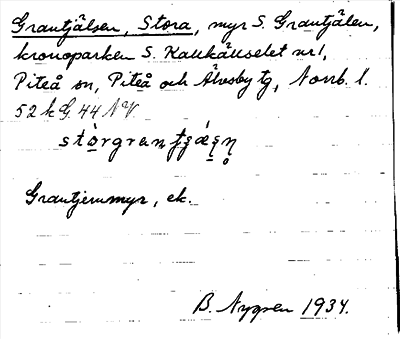 Grantjälsen, Stora, myr S. Grantjälen,
kronoparken S. Kallkällselet nr 1,
Piteå sn, Piteå och Älvsby tg, Norrb. l.
52 k G. 44 N V
Grantjernmyr, ek.
B. Nygren 1934.